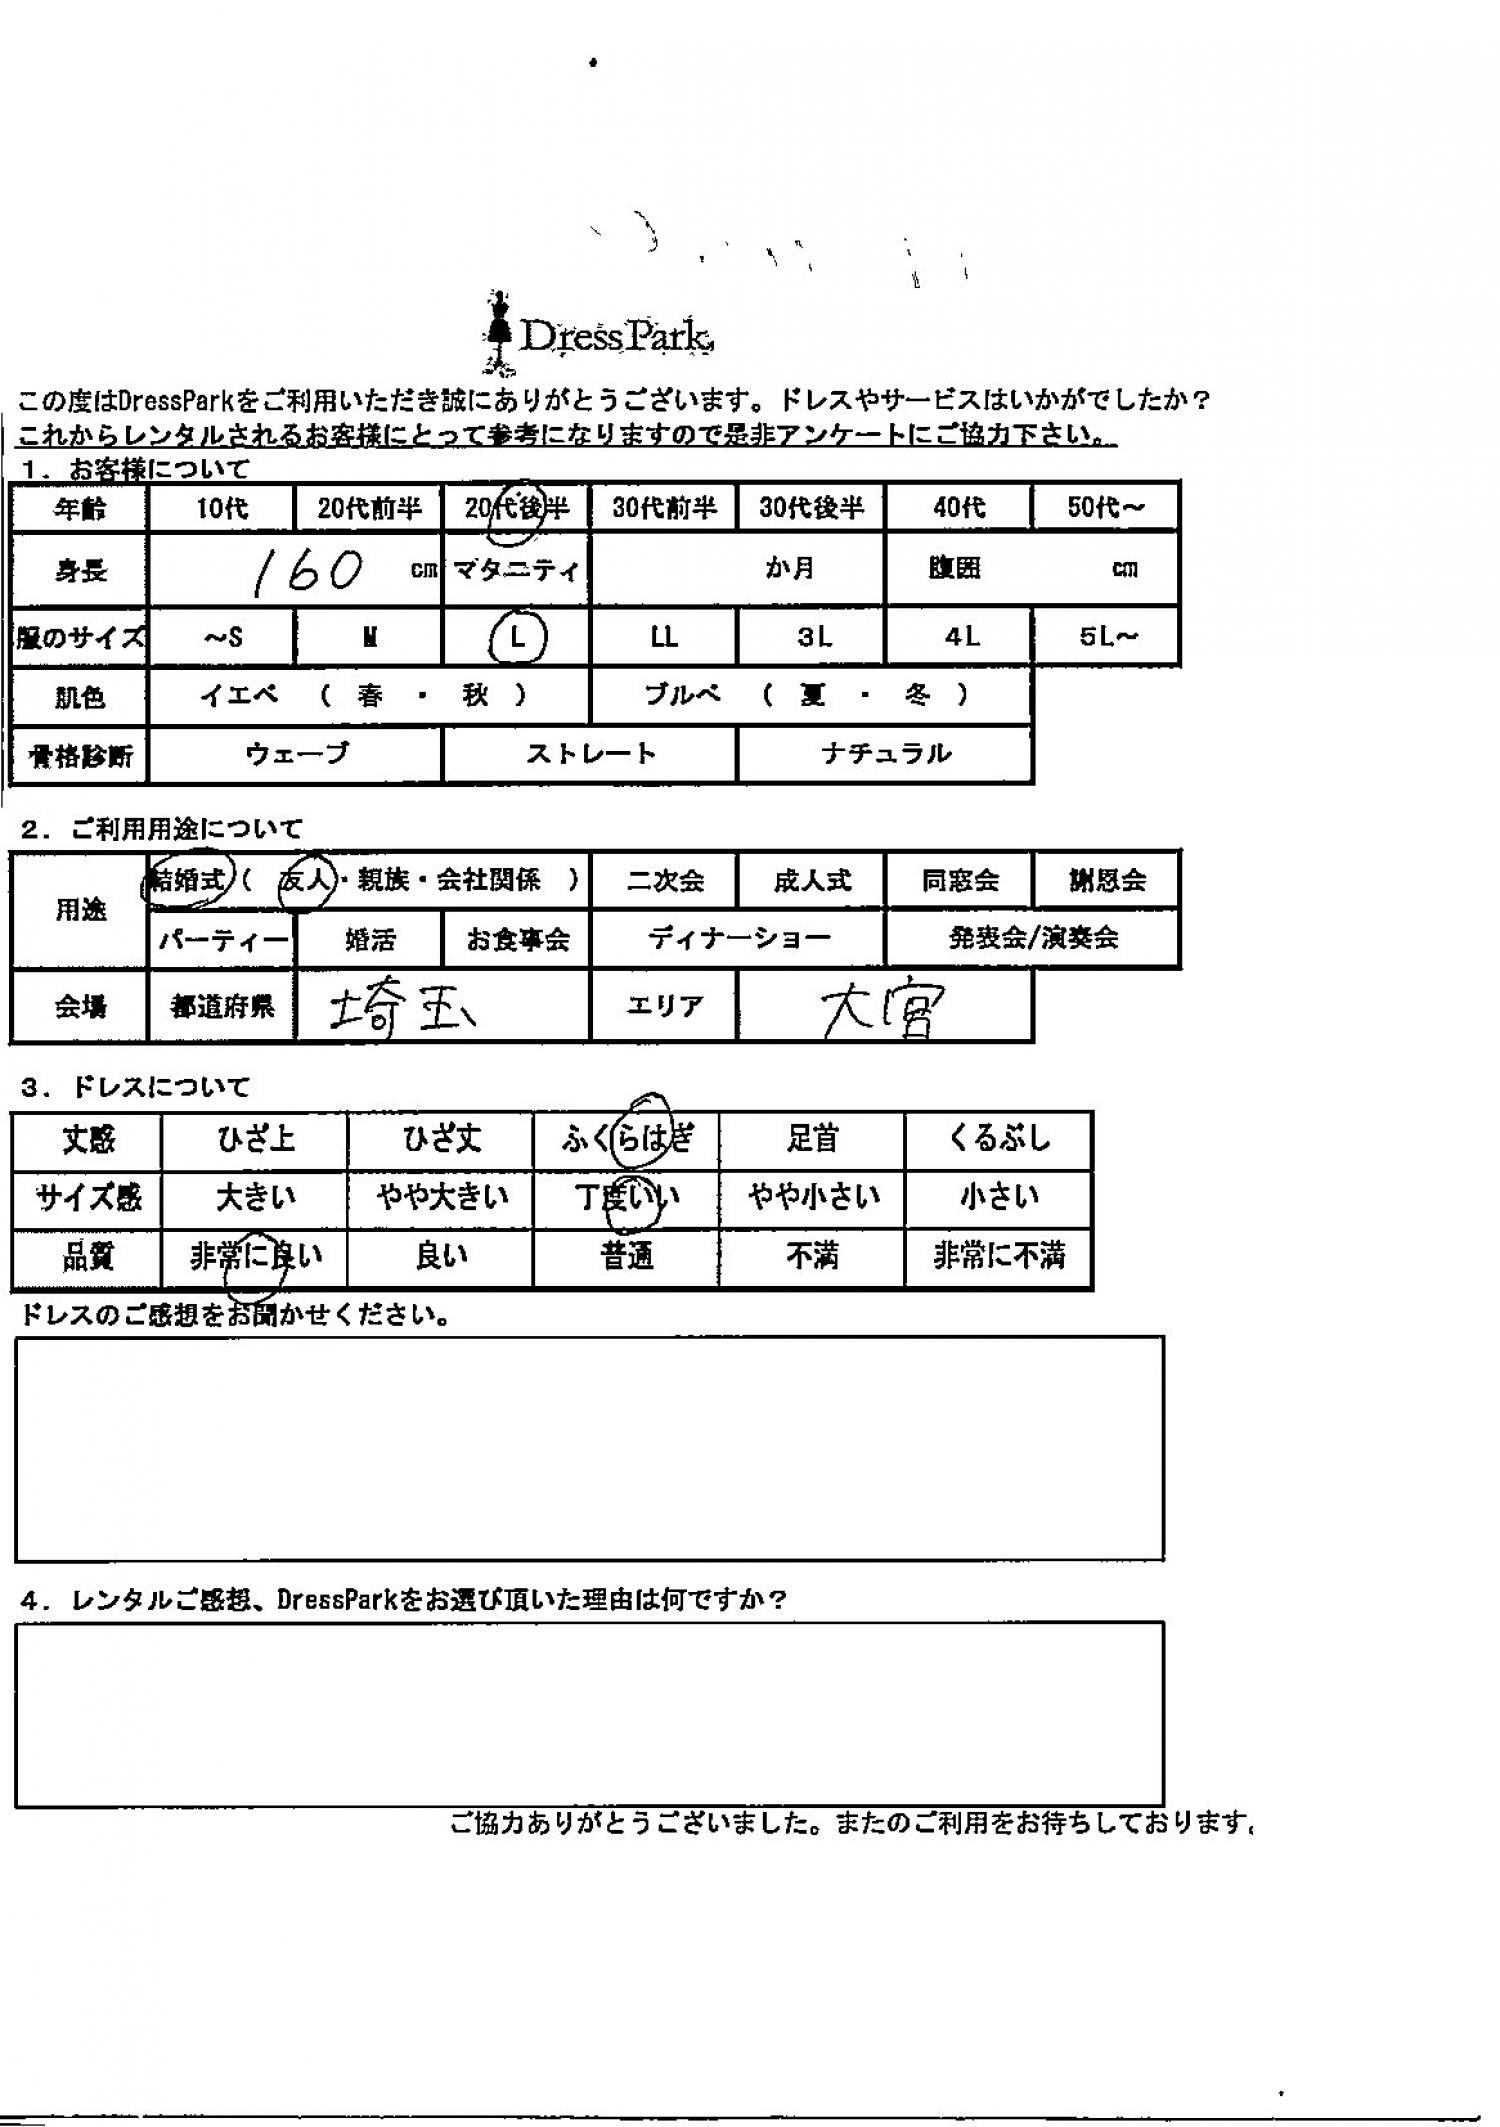 DressPark
この度はDressParkをご利用いただき誠にありがとうございます。ドレスやサービスはいかがでしたか？
これからレンタルされるお客様にとって参考になりますので是非アンケートにご協力下さい。
１．お客様について
年齢 10代 20代前半 20代後半 30代前半 30代後半 40代 50代～
身長 160 cm マタニティ か月 腹囲 cm
服のサイズ ～S M L LL 3L 4L 5L～
肌色 イエベ （ 春 ・ 秋 ） ブルベ （ 夏 ・ 冬 ）
骨格診断 ウェーブ ストレート ナチュラル
２．ご利用用途について
用途 結婚式（ 友人・親族・会社関係 ） 二次会 成人式 同窓会 謝恩会
パーティー 婚活 お食事会 ディナーショー 発表会/演奏会
会場 都道府県 埼玉 エリア 大宮
３．ドレスについて
丈感 ひざ上 ひざ丈 ふくらはぎ 足首 くるぶし
サイズ感 大きい やや大きい 丁度いい やや小さい 小さい
品質 非常に良い 良い 普通 不満 非常に不満
ドレスのご感想をお聞かせください。
４．レンタルご感想、DressParkをお選び頂いた理由は何ですか？
ご協力ありがとうございました。またのご利用をお待ちしております。